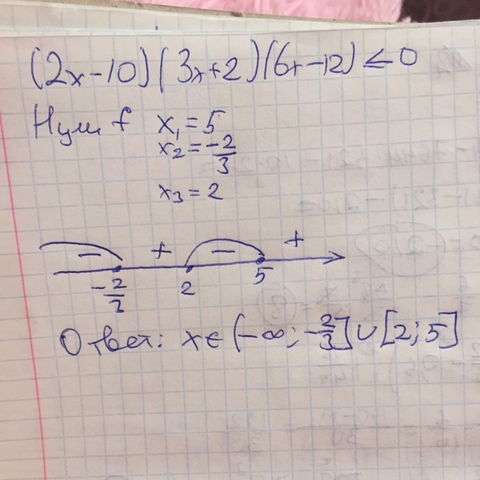 (2x-10)(3x+2)(6x-12)≤0
Нули f x₁=5
x₂=-2/3
x₃=2
- + - +
-2/3 2 5
Ответ: x∈(-∞; -2/3]∪[2; 5]